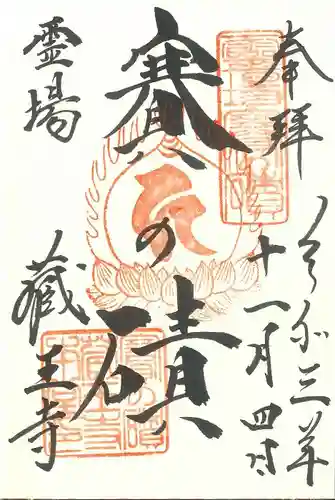 奉拝
令和三年
十一月四日
賽の磧
霊場
蔵王寺